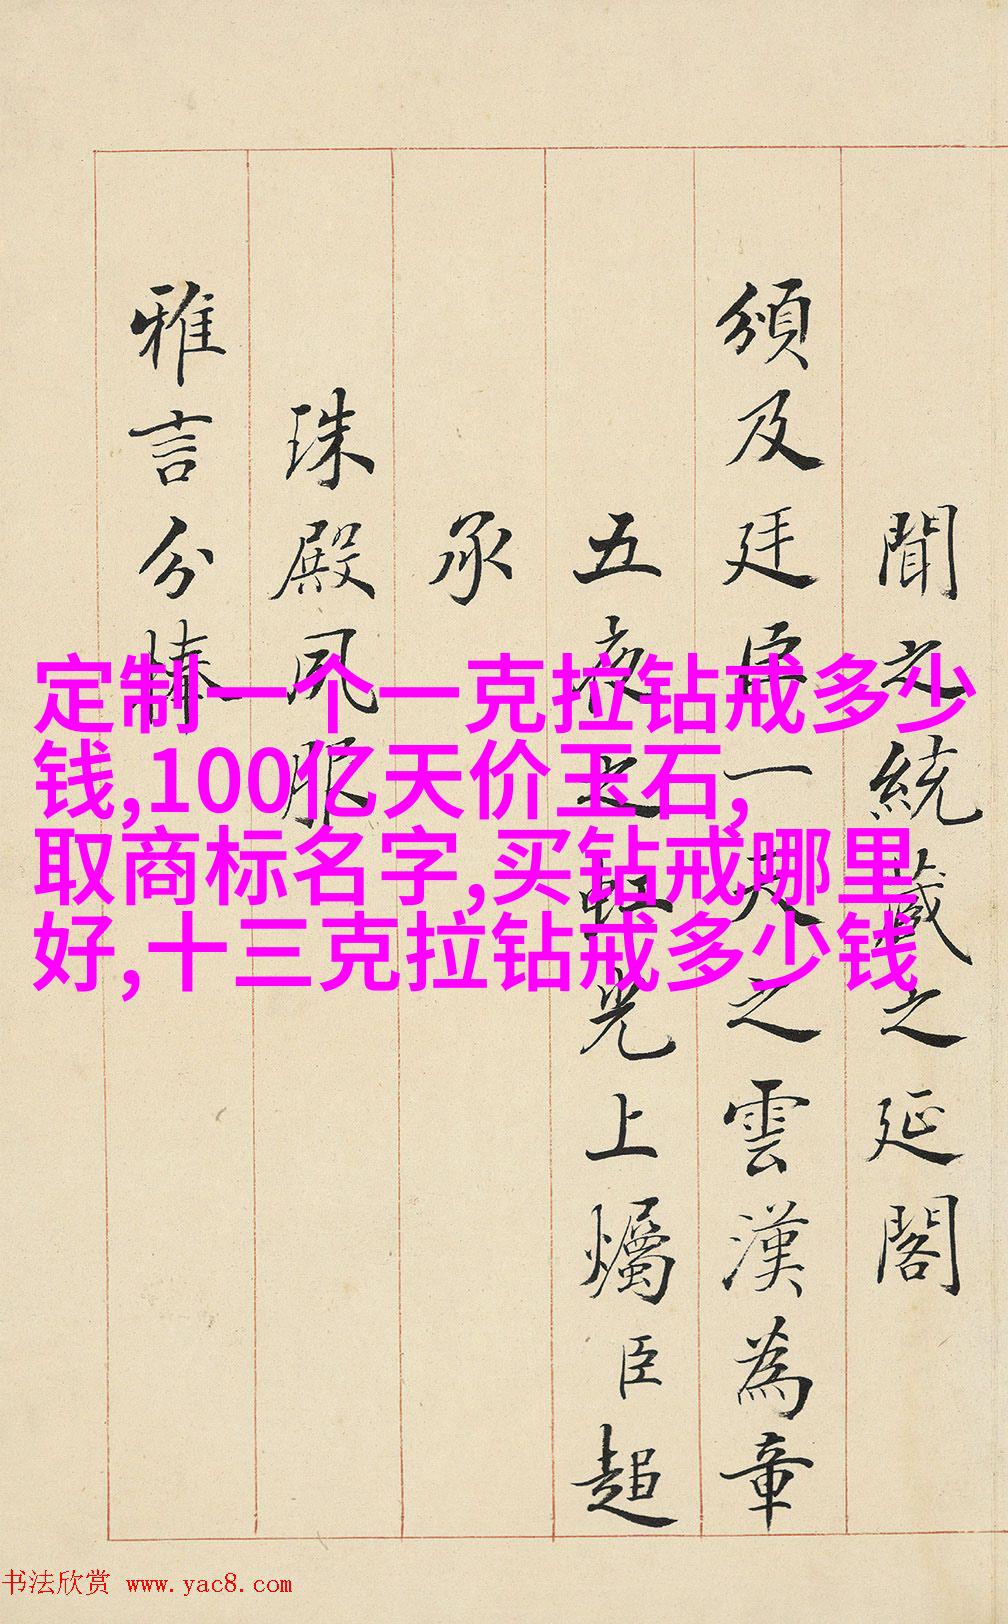 聞之統藏之延閣
頒及廷臣一天之雲漢為章
五夜之虹光上爥臣超
承
珠殿夙服
雅言分捧
定制一个一克拉钻戒多少
钱,100亿天价玉石,
取商标名字,买钻戒哪里
好,十三克拉钻戒多少钱
书法欣赏 www.yac8.com